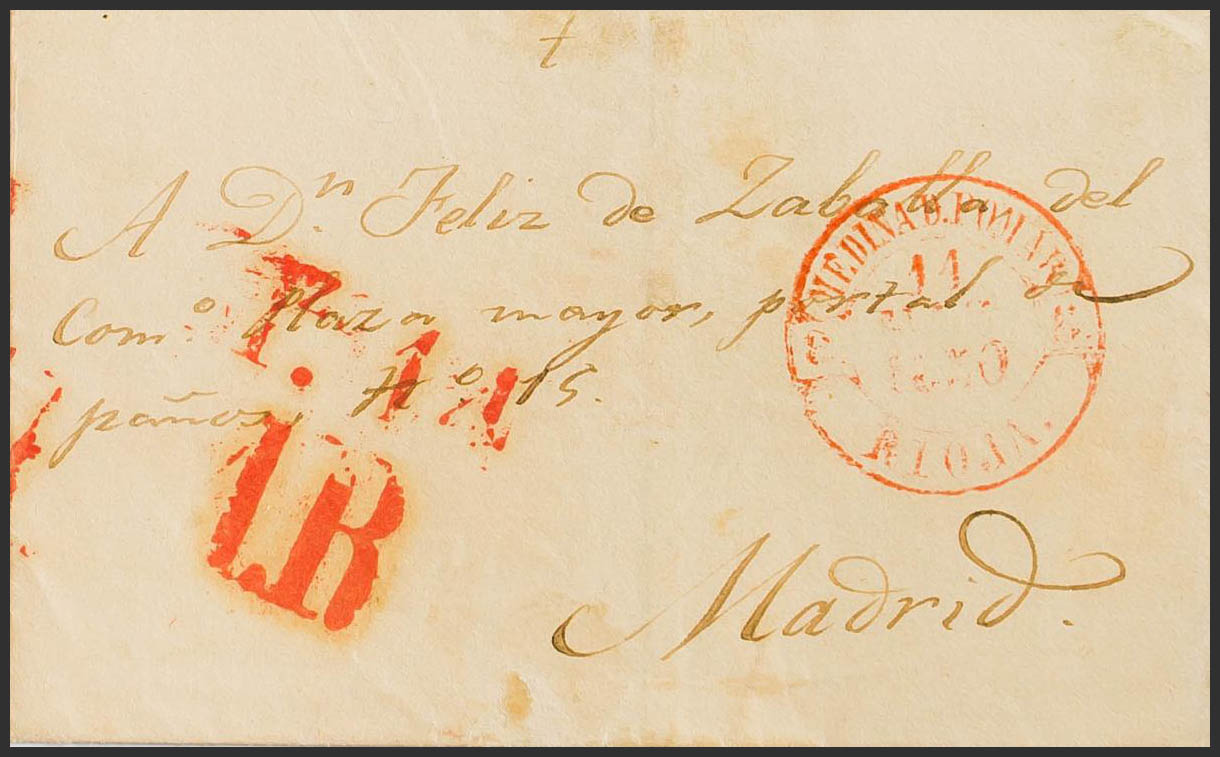 t
A D.ⁿ Feliz de Zaballa del
Com.º Plaza mayor, portal de
paños, Nº 15.
Madrid.
MEDINA D. POMAR
11
1850
RIOJA.